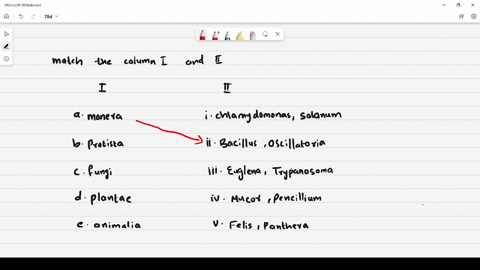 Microsoft Whiteboard
78d
match the column I and II
I II
a. monera i. chlamydomonas, solanum
b. Protista ii. Bacillus, Oscillatoria
c. fungi iii. Euglena, Trypanosoma
d. plantae iv. Mucor, Pencillium
e. animalia v. Felis, Panthera